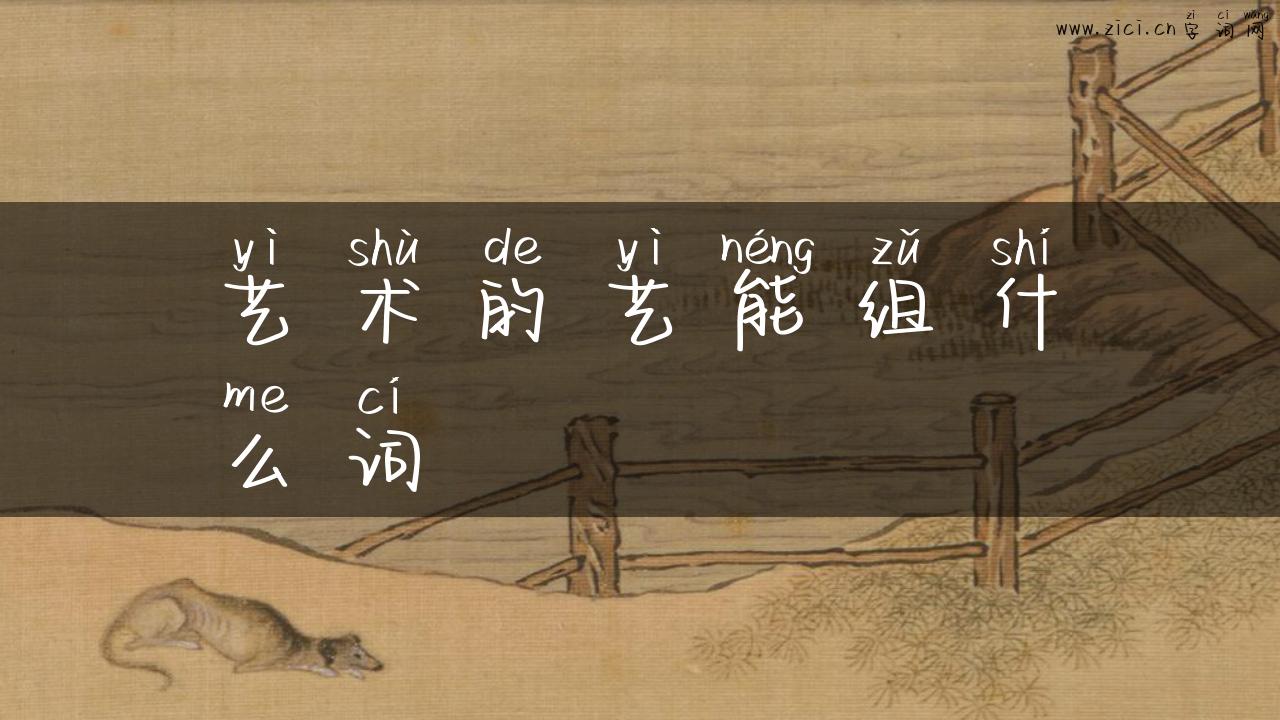 zi ci wang
www.zici.cn 字词网
yì shù de yì néng zǔ shí
艺术的艺能组什
me cí
么词